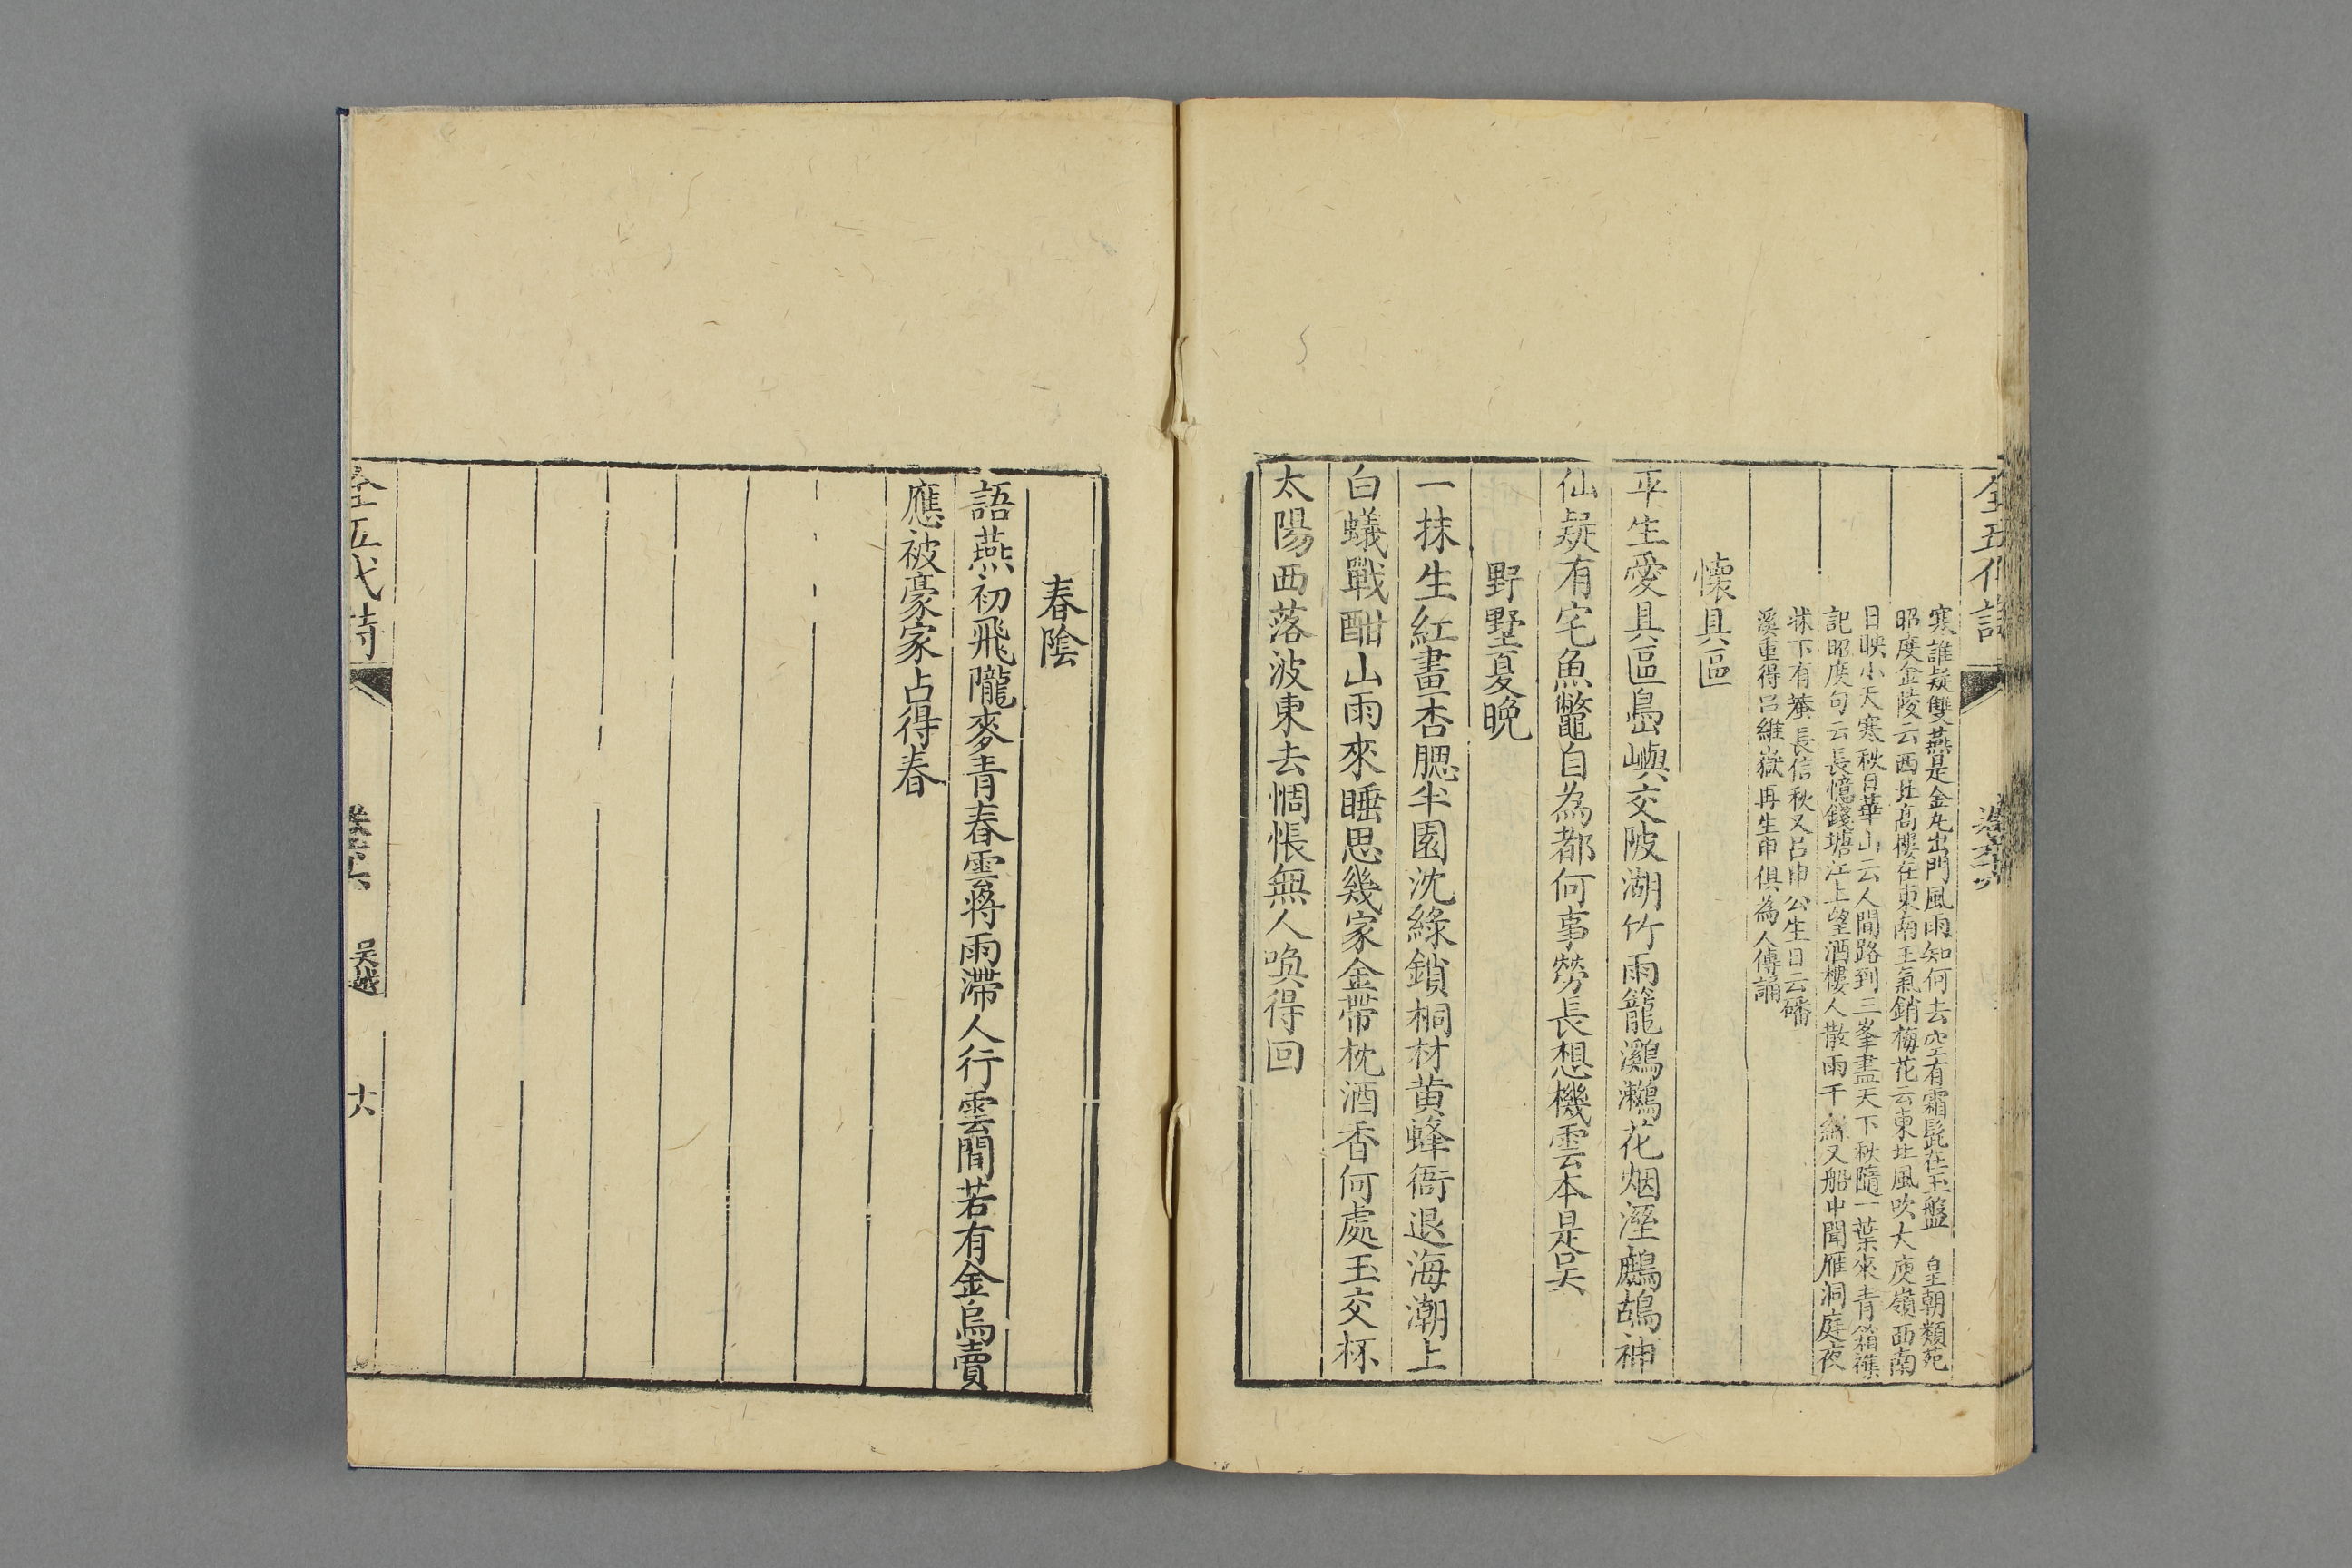 全五代詩
寒誰疑雙燕是金丸出門風雨知何去空有霜髭在玉盤 皇朝類苑
昭度金陵云西北高樓在東南王氣銷梅花云東北風吹大庾嶺西南
日映小天寒秋日華山云人間路到三峯盡天下秋隨一葉來青箱襍
記昭度句云長憶錢塘江上望酒樓人散雨千絲又船中聞雁洞庭夜
牀下有蛩長信秋又呂申公生日云磻
溪重得呂維嶽再生申俱為人傳誦
懷具區
平生愛具區島嶼交陂湖竹雨籠鸂鶒花烟溼鷓鴣神
仙疑有宅魚鼈自為都何事勞長想機雲本是吳
野墅夏晚
一抹生紅畫杏腮半園沈綠鎖桐材黃蜂衙退海潮上
白蟻戰酣山雨來睡思幾家金帶枕酒香何處玉交杯
太陽西落波東去惆悵無人喚得回
春陰
語燕初飛隴麥青春雲將雨滯人行雲間若有金烏賣
應被豪家占得春
全五代詩
吳越
十六